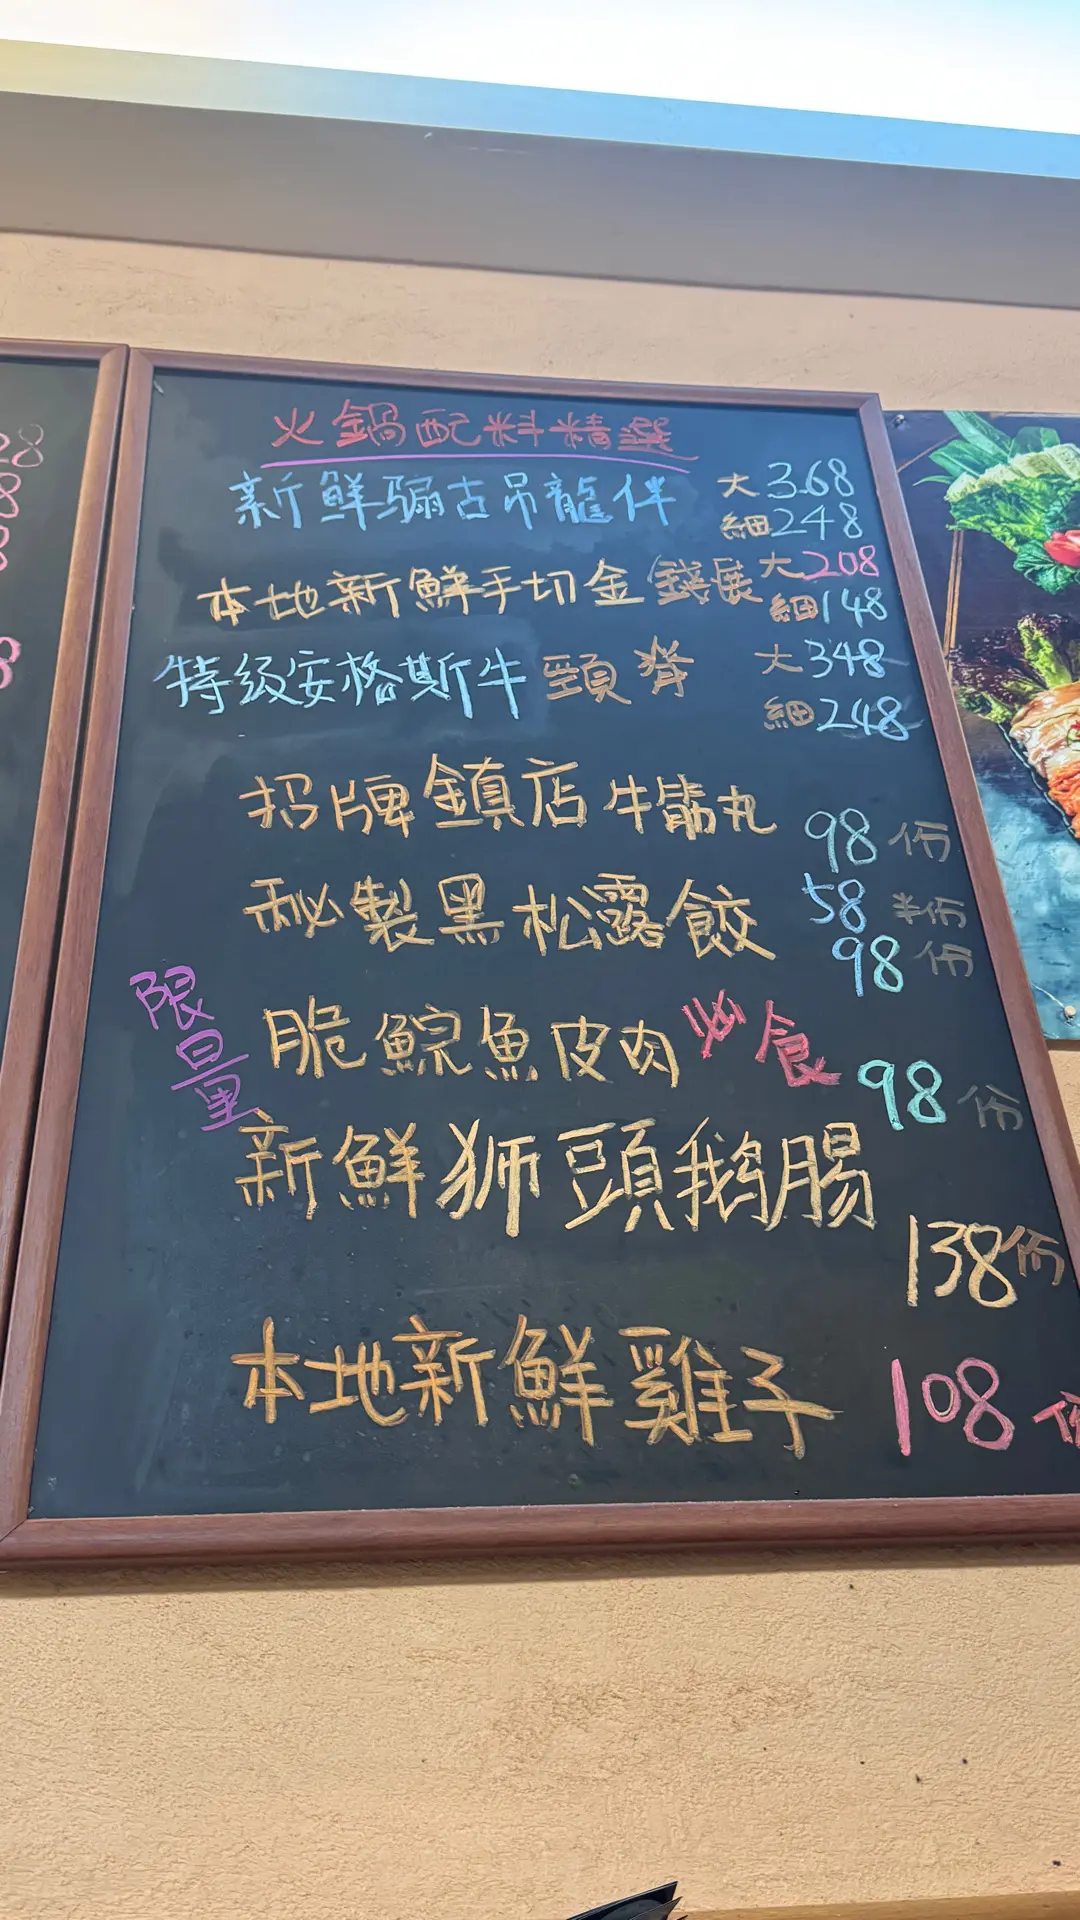 火鍋配料精選
新鮮騸古吊龍伴 大368
細248
本地新鮮手切金錢展 大208
細148
特级安格斯牛頸脊 大348
細248
招牌鎮店牛筋丸 98份
秘製黑松露餃 58半份
98份
限量
脆鯇魚皮肉 必食 98份
新鮮狮頭鵝腸 138份
本地新鮮雞子 108份
28
8
8
8